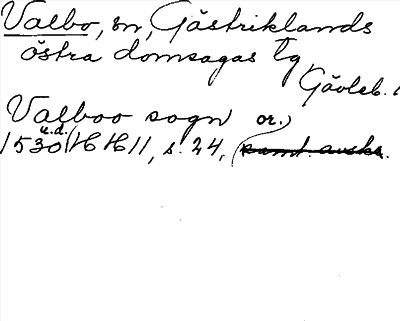 Valbo, sn, Gästriklands
östra domsagas tg
Gävleb. l
Valboo sogn or.)
1530 u.d. (HH 11, s. 24, (samt. avskr.